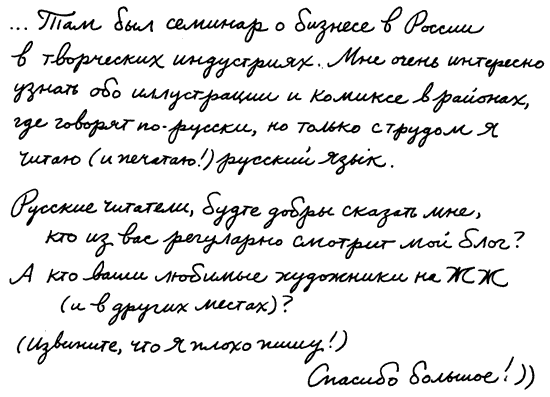 ... Там был семинар о бизнесе в России
в творческих индустриях. Мне очень интересно
узнать обо иллустрации и комиксе в районах,
где говорят по-русски, но только с трудом я
читаю (и печатаю!) русский язык.
Русские читатели, будте добры сказать мне,
кто из вас регуларно смотрит мой блог?
А кто ваши любимые художники на ЖЖ
(и в других местах)?
(Извините, что я плохо пишу!)
Спасибо большое!))